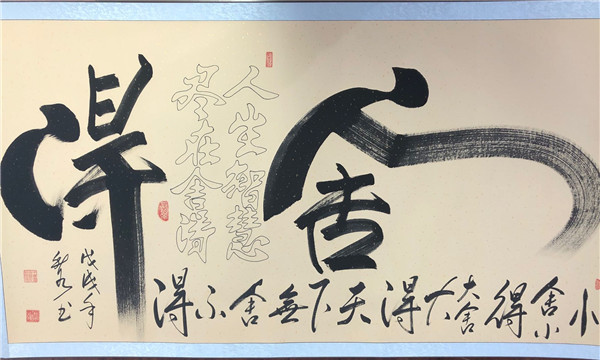 舍得
人生智慧
尽在舍得
小舍小得大舍大得天下無舍不得
戊戌年